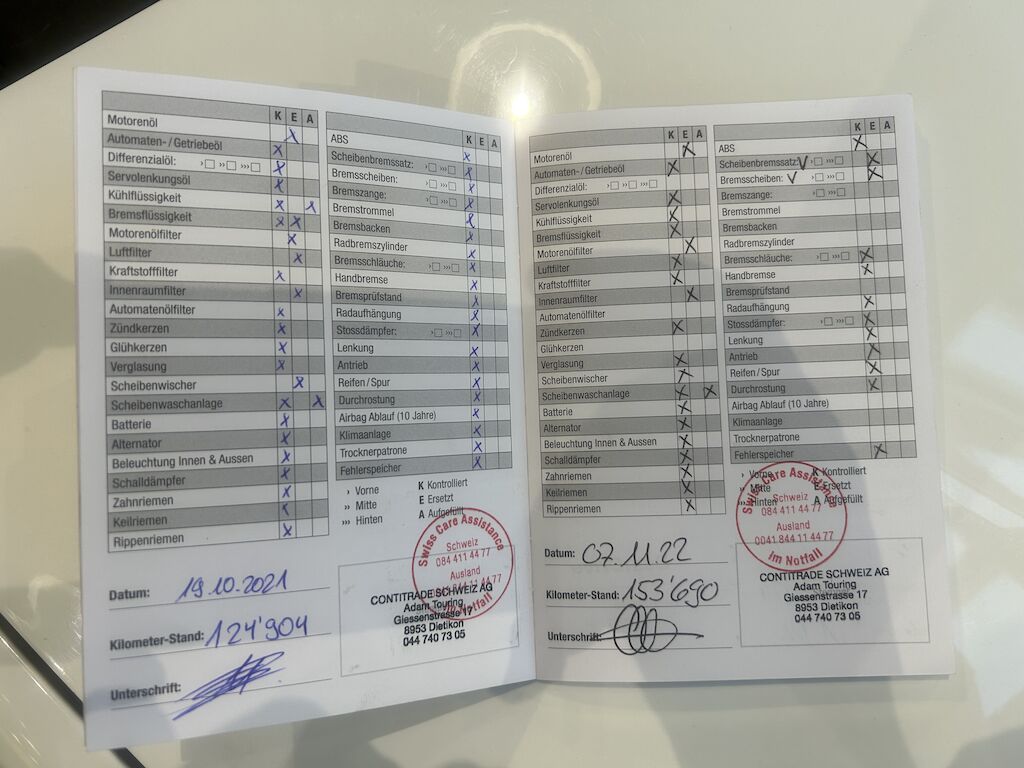 K E A
Motorenöl
Automaten- / Getriebeöl
Differenzialöl: › ›› ›››
Servolenkungsöl
Kühlflüssigkeit
Bremsflüssigkeit
Motorenölfilter
Luftfilter
Kraftstofffilter
Innenraumfilter
Automatenölfilter
Zündkerzen
Glühkerzen
Verglasung
Scheibenwischer
Scheibenwaschanlage
Batterie
Alternator
Beleuchtung Innen & Aussen
Schalldämpfer
Zahnriemen
Keilriemen
Rippenriemen
Datum: 19.10.2021
Kilometer-Stand: 124'904
Unterschrift:
K E A
ABS
Scheibenbremssatz: › ›››
Bremsscheiben: › ›››
Bremszange: › ›››
Bremstrommel
Bremsbacken
Radbremszylinder
Bremsschläuche: › ›››
Handbremse
Bremsprüfstand
Radaufhängung
Stossdämpfer: › ›››
Lenkung
Antrieb
Reifen / Spur
Durchrostung
Airbag Ablauf (10 Jahre)
Klimaanlage
Trocknerpatrone
Fehlerspeicher
› Vorne K Kontrolliert
›› Mitte E Ersetzt
››› Hinten A Aufgefüllt
Swiss Care Assistance
Schweiz
084 411 44 77
Ausland
0041 844 11 44 77
Im Notfall
CONTITRADE SCHWEIZ AG
Adam Touring
Giessenstrasse 17
8953 Dietikon
044 740 73 05
K E A
Motorenöl
Automaten- / Getriebeöl
Differenzialöl: › ›› ›››
Servolenkungsöl
Kühlflüssigkeit
Bremsflüssigkeit
Motorenölfilter
Luftfilter
Kraftstofffilter
Innenraumfilter
Automatenölfilter
Zündkerzen
Glühkerzen
Verglasung
Scheibenwischer
Scheibenwaschanlage
Batterie
Alternator
Beleuchtung Innen & Aussen
Schalldämpfer
Zahnriemen
Keilriemen
Rippenriemen
Datum: 07.11.22
Kilometer-Stand: 153'690
Unterschrift:
K E A
ABS
Scheibenbremssatz: › ›››
Bremsscheiben: › ›››
Bremszange: › ›››
Bremstrommel
Bremsbacken
Radbremszylinder
Bremsschläuche: › ›››
Handbremse
Bremsprüfstand
Radaufhängung
Stossdämpfer: › ›››
Lenkung
Antrieb
Reifen / Spur
Durchrostung
Airbag Ablauf (10 Jahre)
Klimaanlage
Trocknerpatrone
Fehlerspeicher
› Vorne K Kontrolliert
›› Mitte E Ersetzt
››› Hinten A Aufgefüllt
Swiss Care Assistance
Schweiz
084 411 44 77
Ausland
0041 844 11 44 77
Im Notfall
CONTITRADE SCHWEIZ AG
Adam Touring
Giessenstrasse 17
8953 Dietikon
044 740 73 05